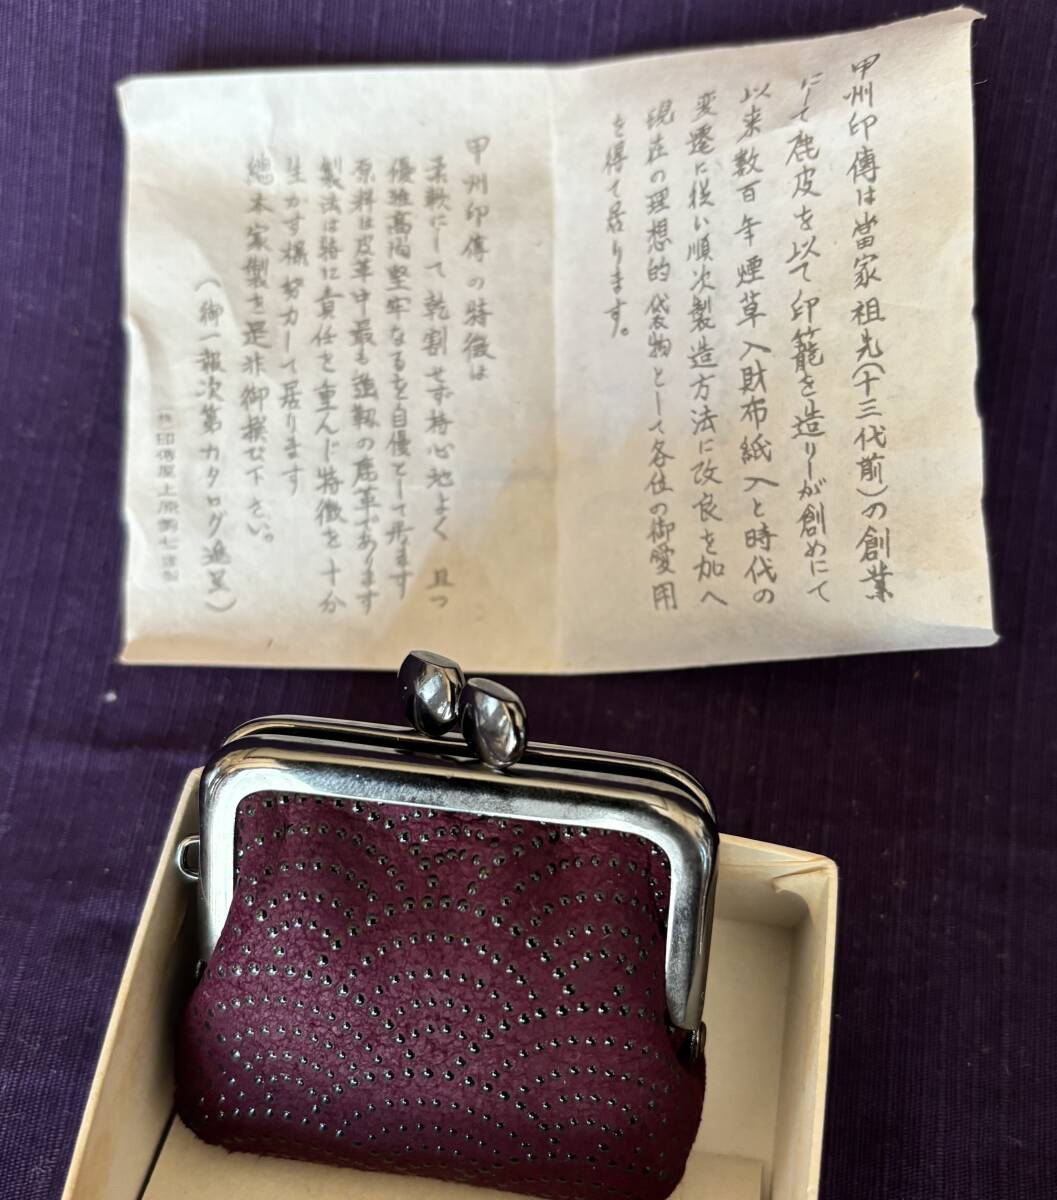 甲州印傳は當家祖先(十三代前)の創業
にして鹿皮を以て印籠を造りしが創めにて
以来数百年煙草入財布紙入と時代の
変遷に従い順次製造方法に改良を加へ
現在の理想的袋物として各位の御愛用
を得て居ります。
甲州印傳の特徴は
柔軟にして乾割せず持心地よく 且つ
優雅高尚堅牢なるを自優として居ます
原料は皮革中最も強靱の鹿革であります
製法は特に責任を重んじ特徴を十分
生かす様努力して居ります
総本家製を是非御撰び下さい。
(御一報次第カタログ進呈)
㈱印傳屋上原勇七謹製